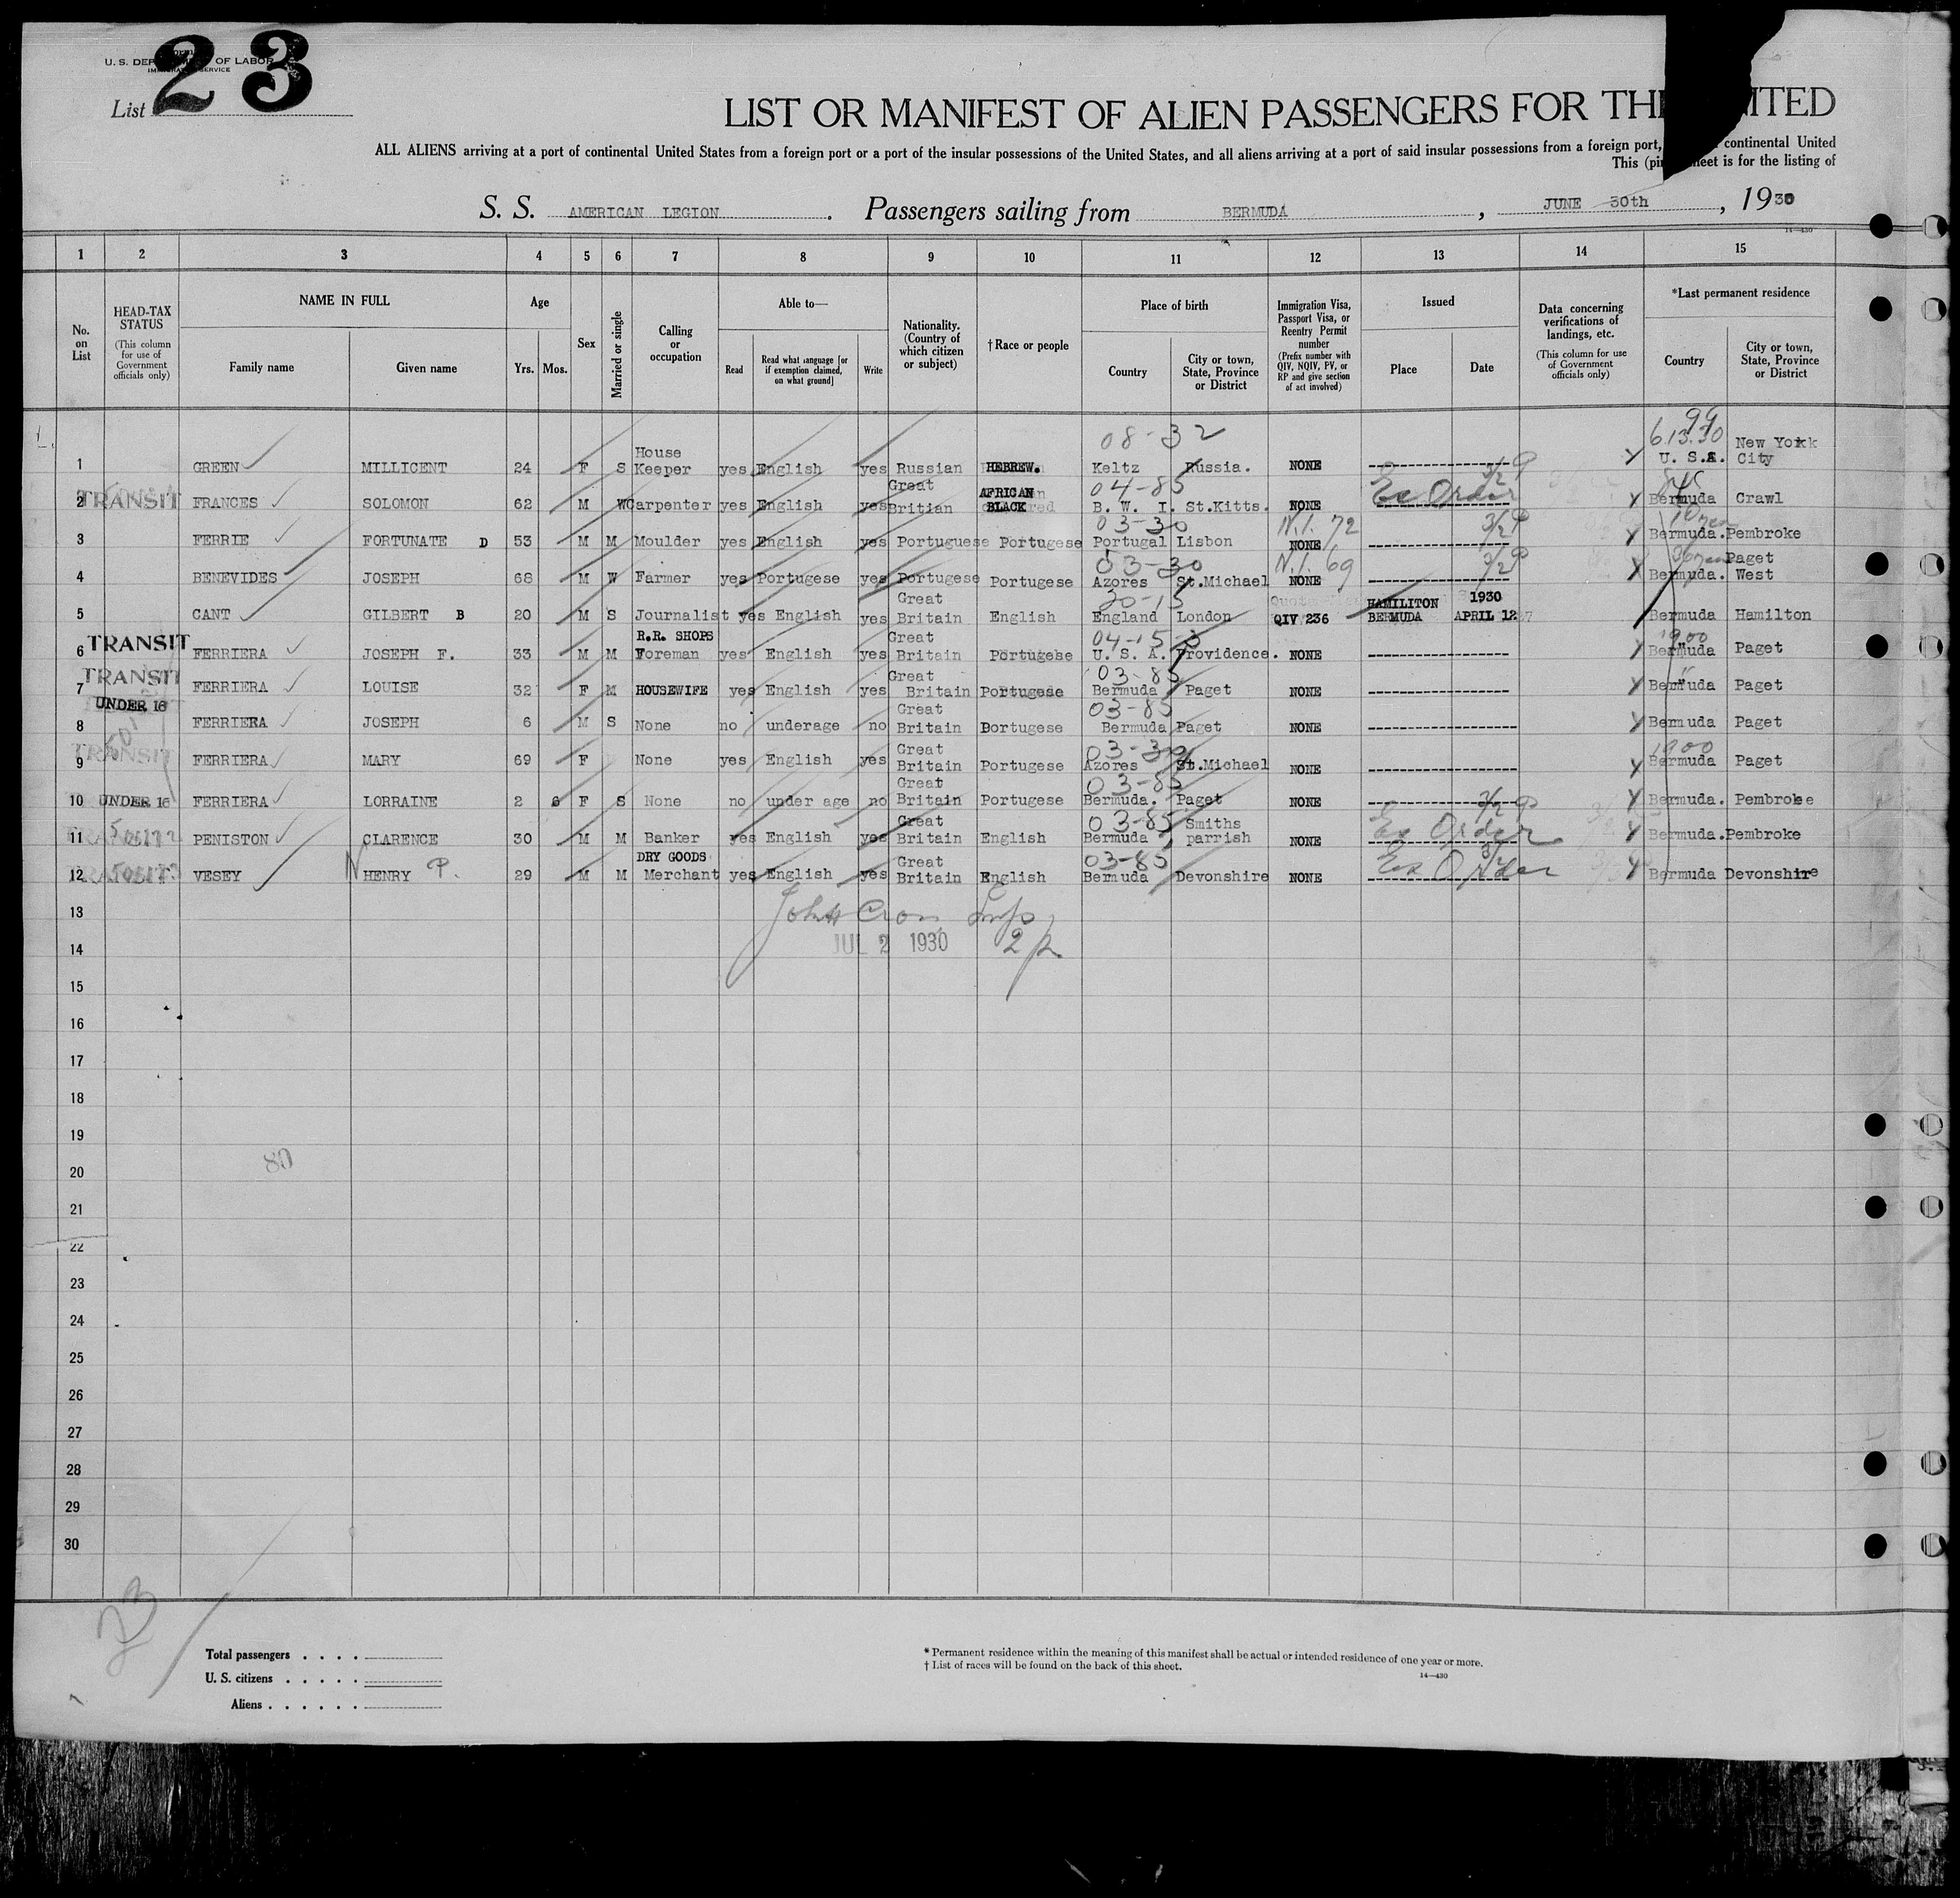 U. S. DEPARTMENT OF LABOR
IMMIGRATION SERVICE
List 23
LIST OR MANIFEST OF ALIEN PASSENGERS FOR THE UNITED
ALL ALIENS arriving at a port of continental United States from a foreign port or a port of the insular possessions of the United States, and all aliens arriving at a port of said insular possessions from a foreign port, continental United
This (pink sheet is for the listing of
S. S. AMERICAN LEGION. Passengers sailing from BERMUDA, JUNE 30th, 1930
14—430
1 2 3 4 5 6 7 8 9 10 11 12 13 14 15
No. on List
HEAD-TAX STATUS (This column for use of Government officials only)
NAME IN FULL
Family name Given name
Age
Yrs. Mos.
Sex
Married or single
Calling or occupation
Able to—
Read Read what language [or if exemption claimed, on what ground] Write
Nationality. (Country of which citizen or subject)
†Race or people
Place of birth
Country City or town, State, Province or District
Immigration Visa, Passport Visa, or Reentry Permit number (Prefix number with QIV, NQIV, PV, or RP and give section of act involved)
Issued
Place Date
Data concerning verifications of landings, etc. (This column for use of Government officials only)
*Last permanent residence
Country City or town, State, Province or District
08-32 99 6.13.30
1 GREEN MILLICENT 24 F S House Keeper yes English yes Russian HEBREW. Keltz Russia. NONE U. S.A. New York City
04-85
2 TRANSIT FRANCES SOLOMON 62 M W Carpenter yes English yes Great Britian AFRICAN BLACK B. W. I. St.Kitts. NONE Ex Order Bermuda Crawl
03-30 N.I. 72
3 FERRIE FORTUNATE D 53 M M Moulder yes English yes Portuguese Portugese Portugal Lisbon NONE Bermuda. Pembroke
03-30 N.I. 69
4 BENEVIDES JOSEPH 68 M W Farmer yes Portugese yes Portugese Portugese Azores St.Michael NONE Bermuda. Paget West
20-15
5 CANT GILBERT B 20 M S Journalist yes English yes Great Britain English England London QIV 236 HAMILITON BERMUDA 1930 APRIL 12 Bermuda Hamilton
TRANSIT 04-15-3 1900
6 FERRIERA JOSEPH F. 33 M M R.R. SHOPS Foreman yes English yes Great Britain Portugese U. S. A. Providence. NONE Bermuda Paget
TRANSIT 03-85 "
7 FERRIERA LOUISE 32 F M HOUSEWIFE yes English yes Great Britain Portugese Bermuda Paget NONE Bermuda Paget
UNDER 16 03-85
8 FERRIERA JOSEPH 6 M S None no underage no Great Britain Portugese Bermuda Paget NONE Bermuda Paget
TRANSIT 03-30 1900
9 FERRIERA MARY 69 F None yes English yes Great Britain Portugese Azores St.Michael NONE Bermuda Paget
03-85
10 UNDER 16 FERRIERA LORRAINE 2 6 F S None no under age no Great Britain Portugese Bermuda. Paget NONE Bermuda. Pembroke
03-85
11 PENISTON CLARENCE 30 M M Banker yes English yes Great Britain English Bermuda Smiths parrish NONE Ex Order Bermuda. Pembroke
03-85
12 VESEY N HENRY P. 29 M M DRY GOODS Merchant yes English yes Great Britain English Bermuda Devonshire NONE Ex Order Bermuda Devonshire
13
JUL 2 1930
14
15
16
17
18
19
80
20
21
22
23
24
25
26
27
28
29
30
23
Total passengers . . . .
U. S. citizens . . . . .
Aliens . . . . . .
* Permanent residence within the meaning of this manifest shall be actual or intended residence of one year or more.
† List of races will be found on the back of this sheet.
14—430